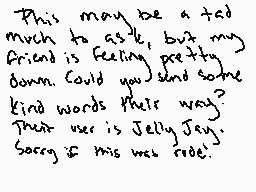 This may be a tad
much to ask, but my
friend is feeling pretty
down. Could you send some
kind words their way?
Their user is Jelly Jay.
Sorry if this was rude!